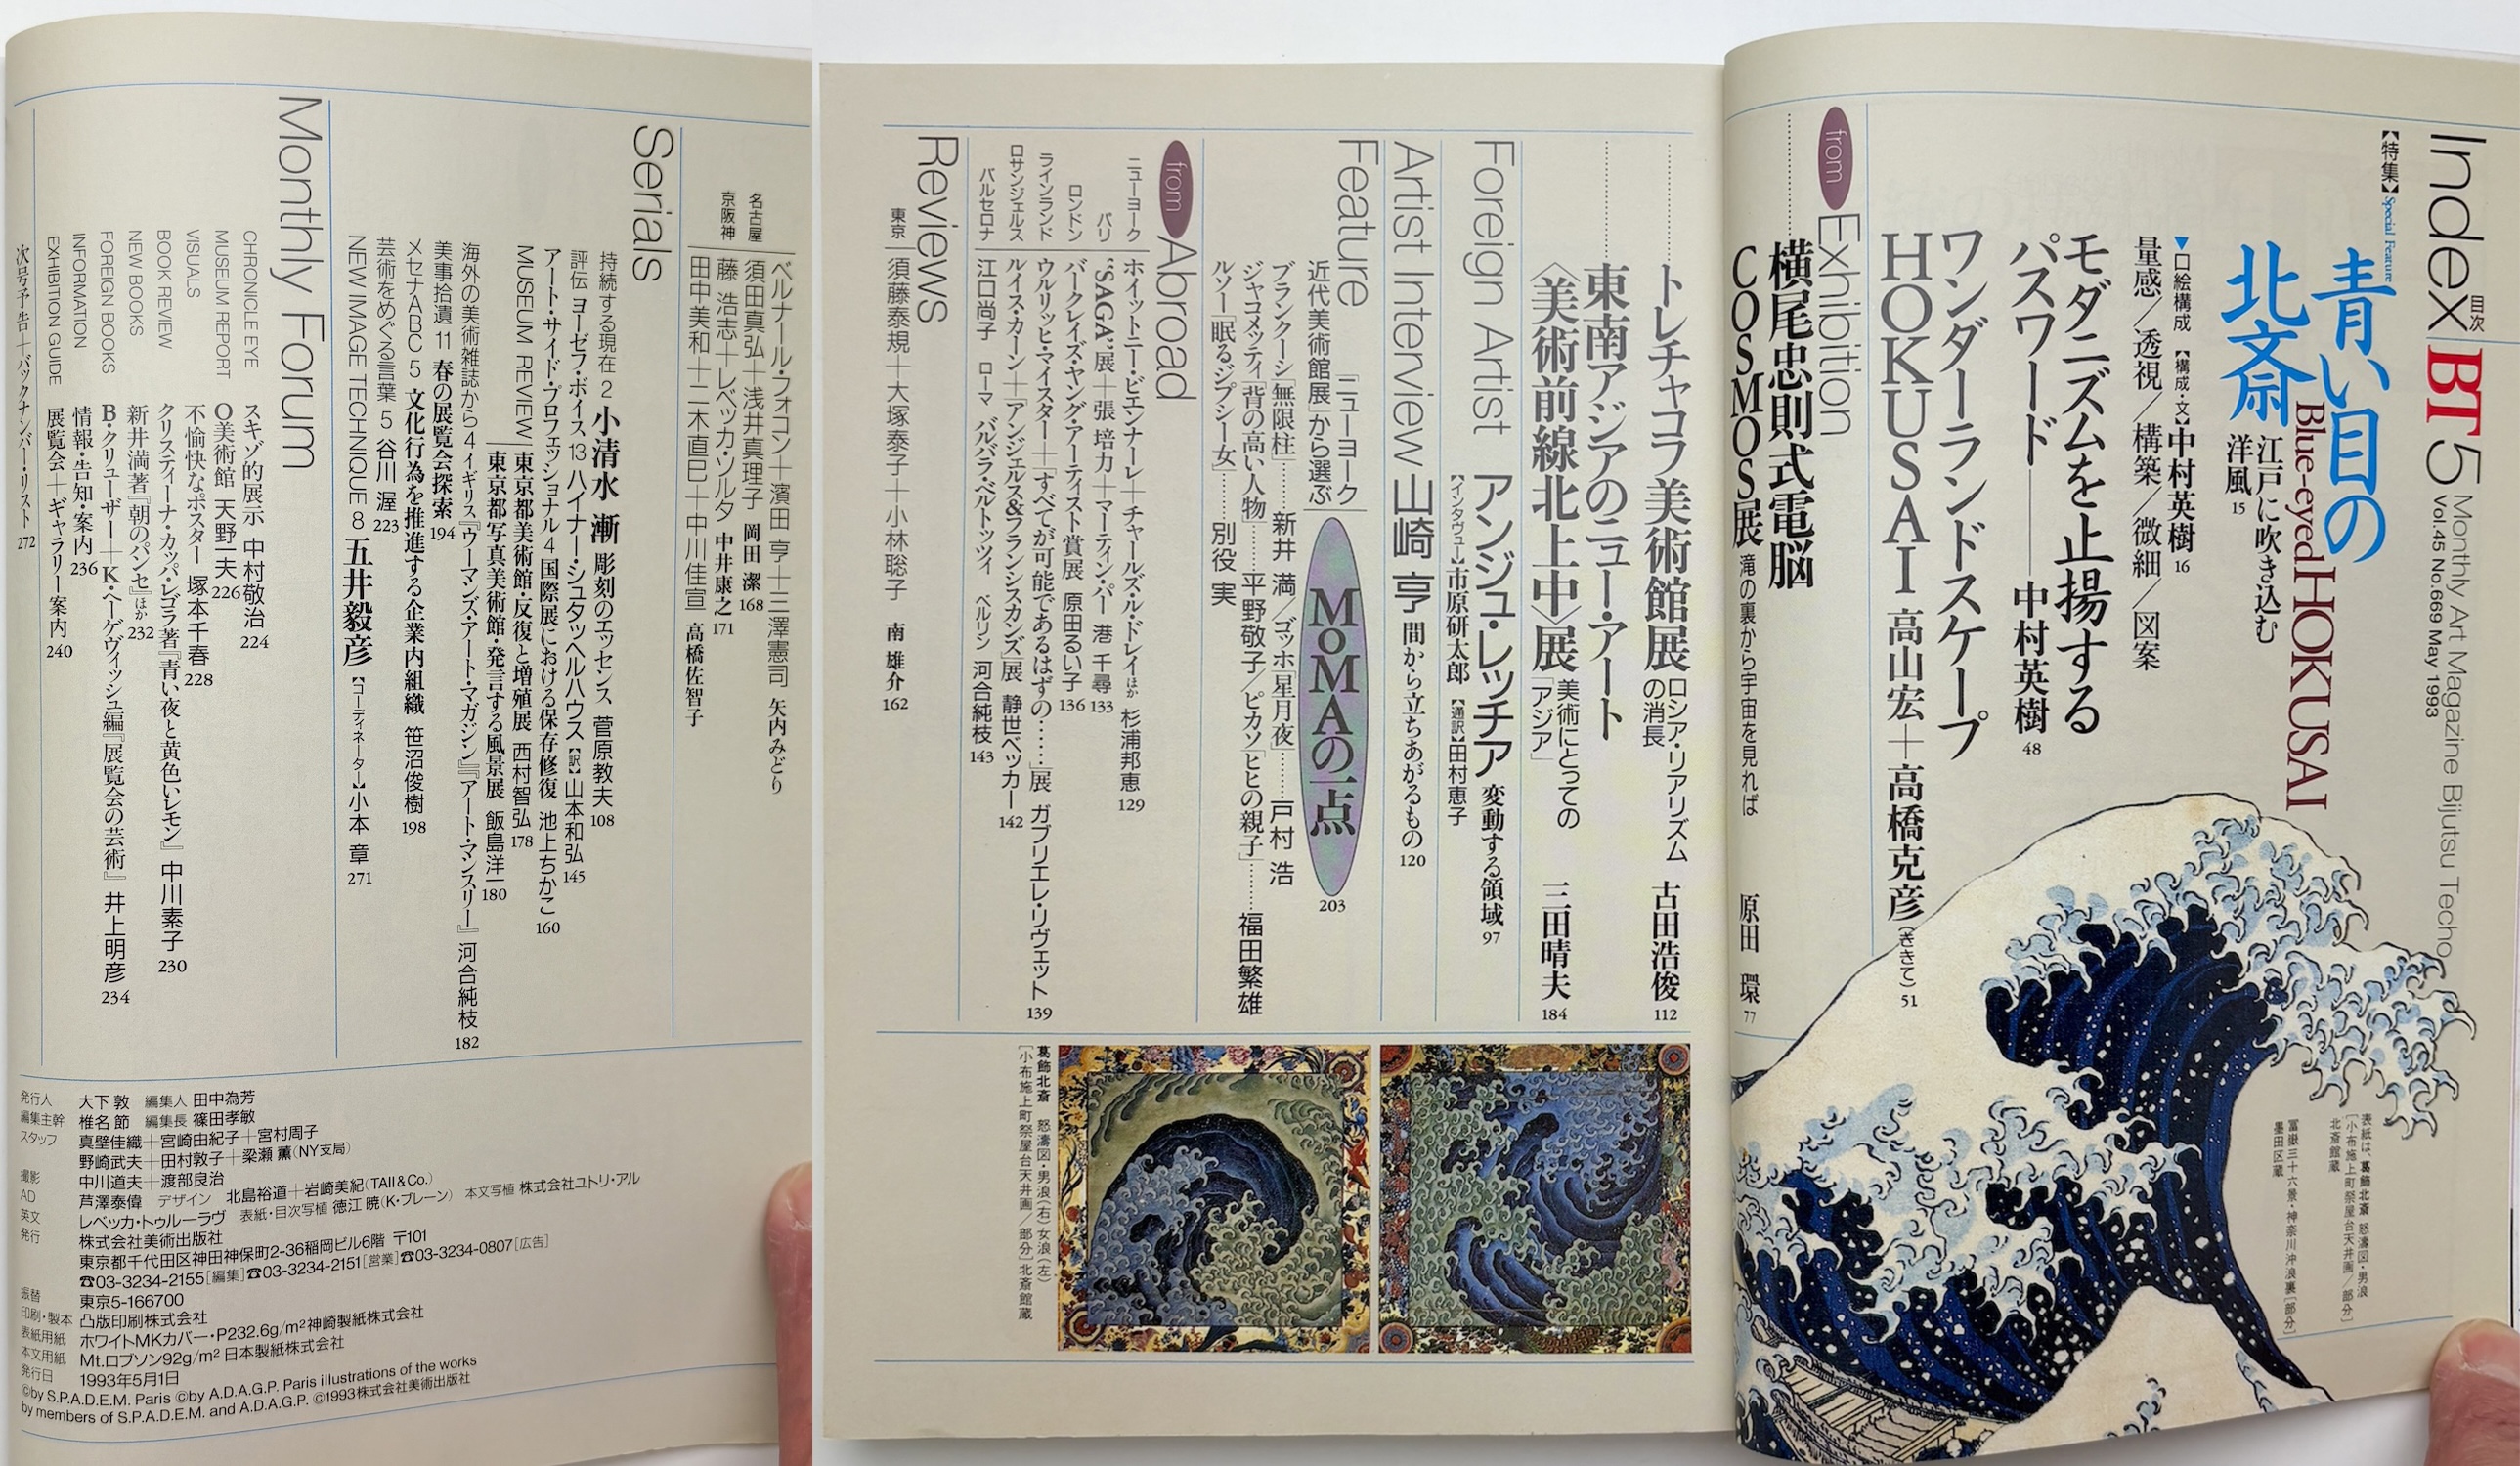 Index 目次 BT 5
Monthly Art Magazine Bijutsu Techo
Vol.45 No.669 May 1993
【特集】Special Feature
青い目の
北斎
Blue-eyed HOKUSAI
江戸に吹き込む
洋風 15
▼口絵構成 【構成・文】中村英樹 16
量感／透視／構築／微細／図案
モダニズムを止揚する
パスワード——中村英樹 48
ワンダーランドスケープ
HOKUSAI 高山宏＋高橋克彦（ききて） 51
from Exhibition
横尾忠則式電脳
COSMOS展 滝の裏から宇宙を見れば 原田 環 77
表紙は、葛飾北斎 怒濤図・男浪
［小布施上町祭屋台天井画／部分］
北斎館蔵
冨嶽三十六景・神奈川沖浪裏［部分］
墨田区蔵
トレチャコフ美術館展 ロシア・リアリズム
の消長 古田浩俊 112
東南アジアのニュー・アート
〈美術前線北上中〉展 美術にとっての
「アジア」 三田晴夫 184
Foreign Artist アンジュ・レッチア 変動する領域 97
【インタヴュー】市原研太郎 【通訳】田村恵子
Artist Interview 山崎 亨 間から立ちあがるもの 120
Feature 「ニューヨーク
近代美術館展」から選ぶ MoMAの一点 203
ブランクーシ「無限柱」……新井 満／ゴッホ「星月夜」……戸村 浩
ジャコメッティ「背の高い人物」……平野敬子／ピカソ「ヒヒの親子」……福田繁雄
ルソー「眠るジプシー女」……別役 実
from Abroad
ニューヨーク ホイットニー・ビエンナーレ＋チャールズ・ル・ドレイほか 杉浦邦恵 129
パリ “SAGA”展＋張 培力＋マーティン・パー 港 千尋 133
ロンドン バークレイズ・ヤング・アーティスト賞展 原田るい子 136
ラインランド ウルリッヒ・マイスター＋「すべてが可能であるはずの……」展 ガブリエレ・リヴェット 139
ロサンジェルス ルイス・カーン＋「アンジェルス&フランシスカンズ」展 静世ベッカー 142
バルセロナ 江口尚子 ローマ バルバラ・ベルトッツィ ベルリン 河合純枝 143
Reviews
東京 須藤泰規＋大塚泰子＋小林聡子 南 雄介 162
葛飾北斎 怒濤図・男浪（右）女浪（左）
［小布施上町祭屋台天井画／部分］北斎館蔵
ベルナール・フォコン＋濱田 亨＋三澤憲司 矢内みどり
名古屋 須田真弘＋浅井真理子 岡田 潔 168
京阪神 藤 浩志＋レベッカ・ソルタ 中井康之 171
田中美和＋二木直巳＋中川佳宣 高橋佐智子
Serials
持続する現在 2 小清水 漸 彫刻のエッセンス 菅原教夫 108
評伝 ヨーゼフ・ボイス 13 ハイナー・シュタッヘルハウス 【訳】山本和弘 145
アート・サイド・プロフェッショナル 4 国際展における保存修復 池上ちかこ 160
MUSEUM REVIEW 東京都美術館・反復と増殖展 西村智弘 178
東京都写真美術館・発言する風景展 飯島洋一 180
海外の美術雑誌から 4 イギリス『ウーマンズ・アート・マガジン』『アート・マンスリー』 河合純枝 182
美事拾遺 11 春の展覧会探索 194
メセナABC 5 文化行為を推進する企業内組織 笹沼俊樹 198
芸術をめぐる言葉 5 谷川 渥 223
NEW IMAGE TECHNIQUE 8 五井毅彦 【コーディネーター】小本 章 271
Monthly Forum
CHRONICLE EYE スキゾ的展示 中村敬治 224
MUSEUM REPORT O美術館 天野一夫 226
VISUALS 不愉快なポスター 塚本千春 228
BOOK REVIEW クリスティーナ・カッパ・レゴラ著『青い夜と黄色いレモン』 中川素子 230
NEW BOOKS 新井満著『朝のパンセ』ほか 232
FOREIGN BOOKS B・クリューザー＋K・ヘーゲヴィッシュ編『展覧会の芸術』 井上明彦 234
INFORMATION 情報・告知・案内 236
EXHIBITION GUIDE 展覧会＋ギャラリー案内 240
次号予告＋バックナンバー・リスト 272
発行人 大下 敦 編集人 田中為芳
編集主幹 椎名 節 編集長 篠田孝敏
スタッフ 真壁佳織＋宮崎由紀子＋宮村周子
野崎武夫＋田村敦子＋梁瀬 薫(NY支局)
撮影 中川道夫＋渡部良治
AD 芦澤泰偉 デザイン 北島裕道＋岩崎美紀(TAII&Co.)
英文 レベッカ・トゥルーラヴ 表紙・目次写植 徳江 暁(K・ブレーン) 本文写植 株式会社ユトリ・アル
発行 株式会社美術出版社
東京都千代田区神田神保町2-36稲岡ビル6階 〒101
☎03-3234-2155［編集］☎03-3234-2151［営業］☎03-3234-0807［広告］
振替 東京5-166700
印刷・製本 凸版印刷株式会社
表紙用紙 ホワイトMKカバー・P232.6g/m²神崎製紙株式会社
本文用紙 Mt.ロブソン92g/m² 日本製紙株式会社
発行日 1993年5月1日
©by S.P.A.D.E.M. Paris ©by A.D.A.G.P. Paris illustrations of the works
by members of S.P.A.D.E.M. and A.D.A.G.P. ©1993株式会社美術出版社